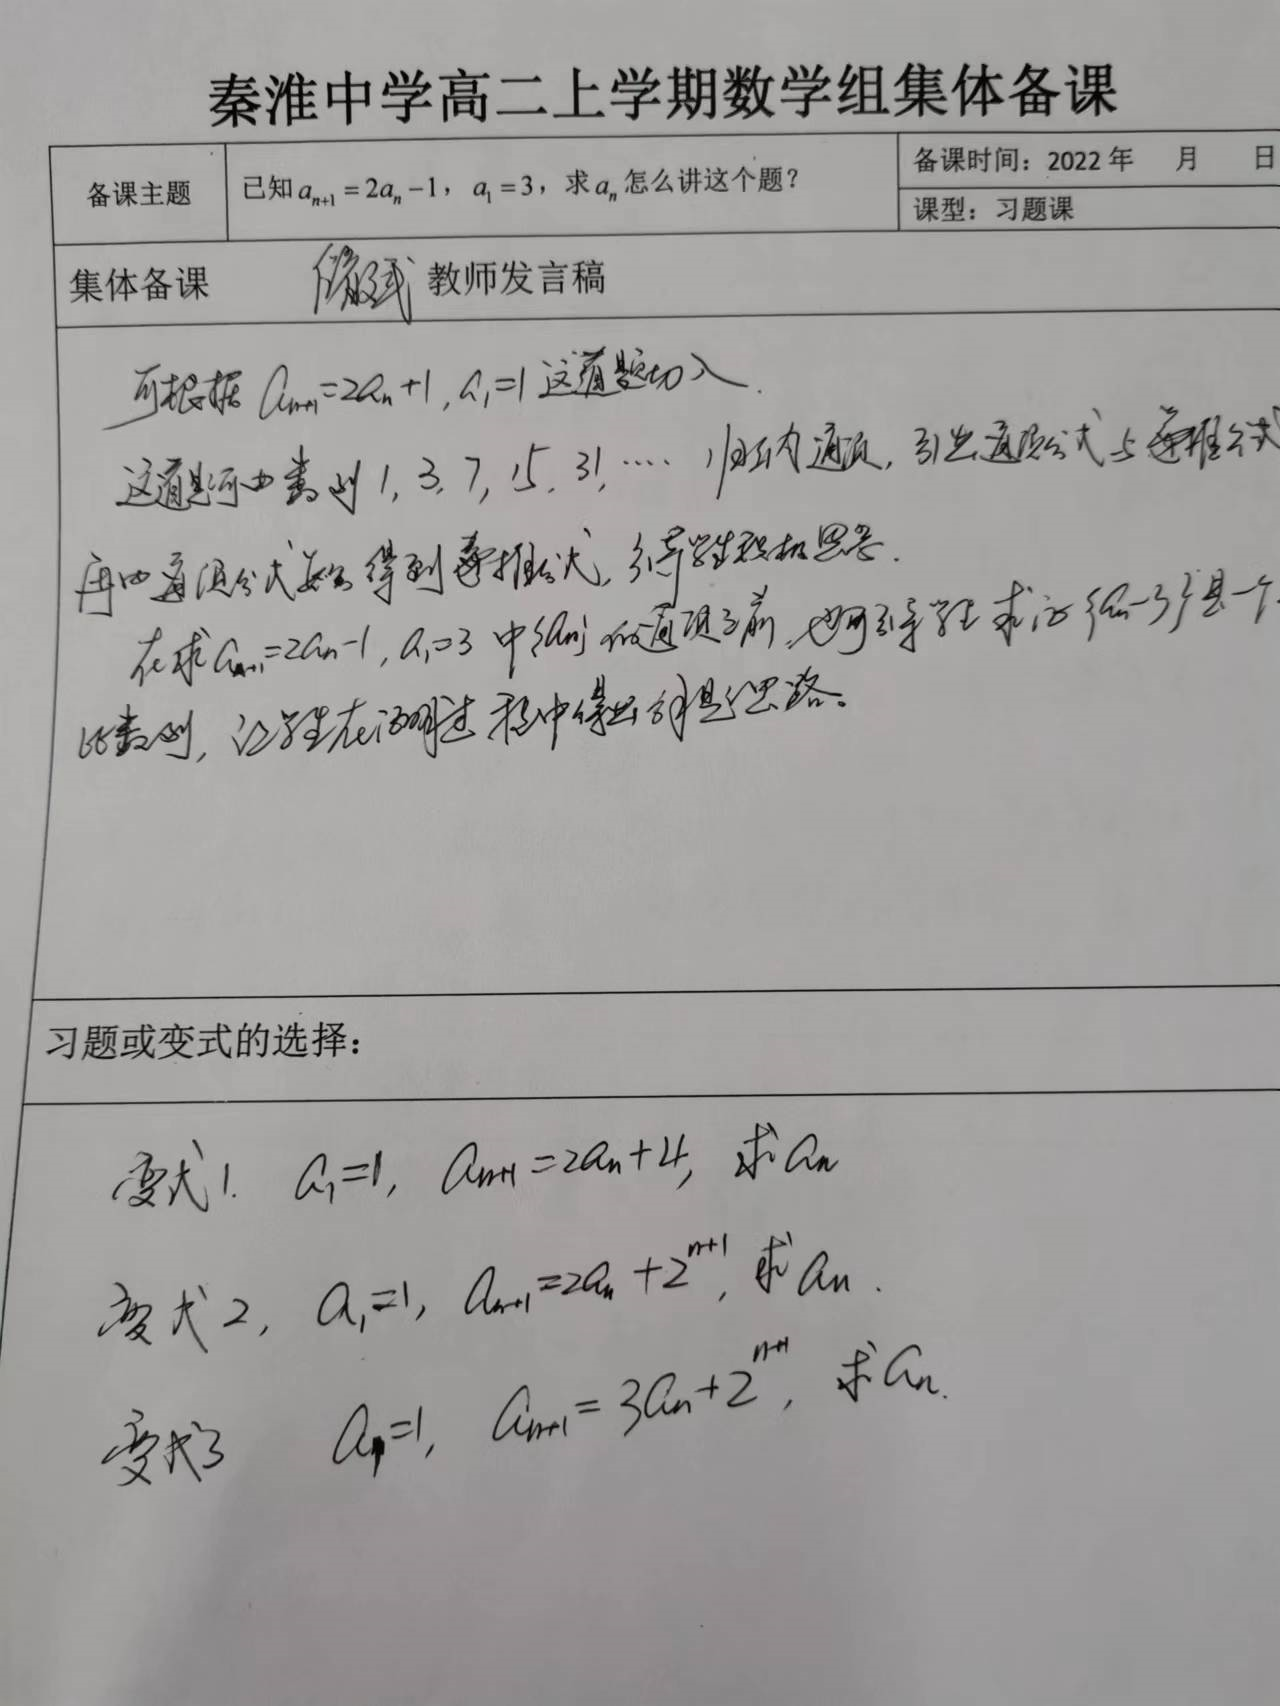 秦淮中学高二上学期数学组集体备课
备课主题
已知 aₙ₊₁ = 2aₙ - 1， a₁ = 3，求 aₙ 怎么讲这个题？
备课时间：2022 年 月 日
课型：习题课
集体备课 教师发言稿
可根据 aₙ₊₁=2aₙ+1, a₁=1 这道题切入.
这道题可由数列 1, 3, 7, 15, 31, ···· 归纳通项, 引出通项公式与递推公式
再由通项公式 得到递推公式, 引导学生积极思考.
在求 aₙ₊₁=2aₙ-1, a₁=3 中{aₙ}的通项之前, 也可引导学生求证{aₙ-3}是一个
比数列, 让学生在证明过程中得出解题思路。
习题或变式的选择：
变式1. a₁=1, aₙ₊₁=2aₙ+4, 求aₙ
变式2, a₁=1, aₙ₊₁=2aₙ+2ⁿ⁺¹, 求aₙ.
变式3 a₁=1, aₙ₊₁=3aₙ+2ⁿ⁺¹, 求aₙ.